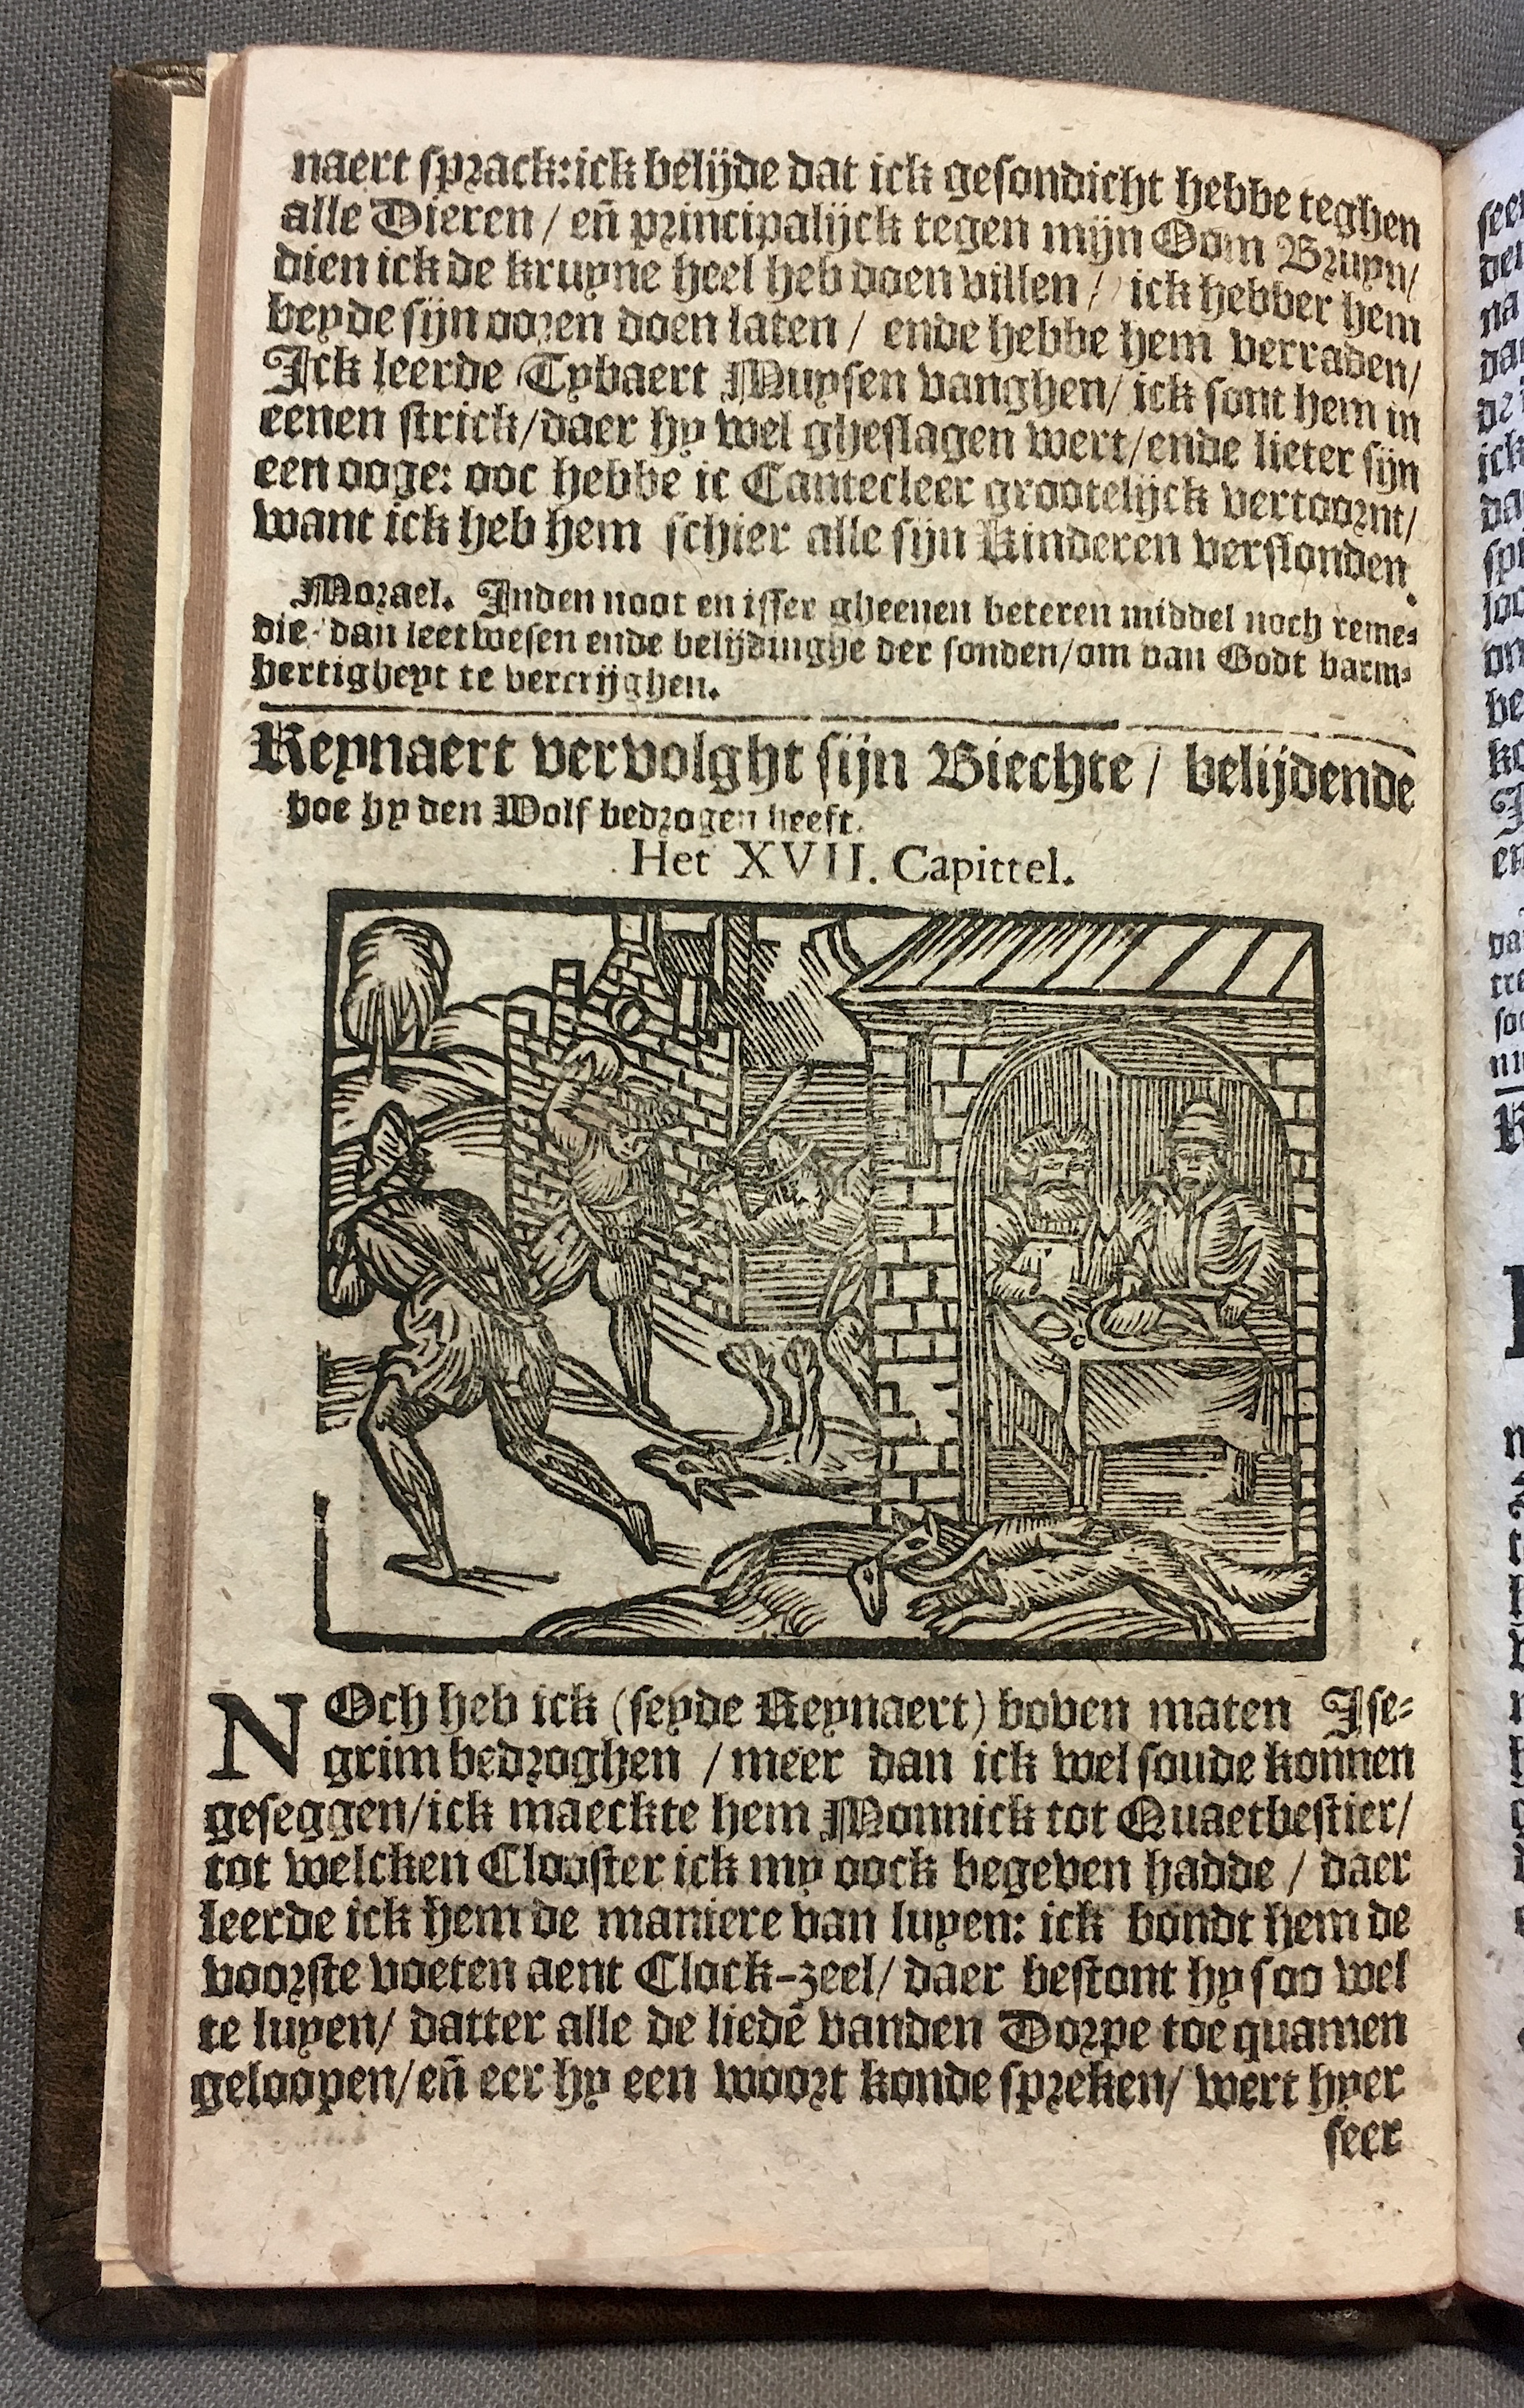 naert sprack: ick belijde dat ick gesondicht hebbe teghen
alle Dieren / eñ principalijck tegen mijn Oom Bruyn/
dien ick de kruyne heel heb doen villen / ick hebber hem
beyde sijn ooren doen laten / ende hebbe hem verraden/
Ick leerde Tybaert Muysen vanghen/ ick sont hem in
eenen strick/daer hy wel gheslagen wert/ende lieter sijn
een ooge: ooc hebbe ic Cantecleer grootelijck vertoornt/
want ick heb hem schier alle sijn Kinderen verslonden.
Morael. Inden noot en isser gheenen beteren middel noch reme-
die dan leetwesen ende belijdinghe der sonden/om van Godt barm-
hertigheyt te vercrijghen.
Reynaert vervolght sijn Biechte / belijdende
hoe hy den Wolf bedrogen heeft.
Het XVII. Capittel.
NOch heb ick (seyde Reynaert) boven maten Ise-
grim bedroghen / meer dan ick wel soude konnen
geseggen/ick maeckte hem Monnick tot Quaetbestier/
tot welcken Clooster ick my oock begeven hadde / daer
leerde ick hem de maniere van luyen: ick bondt hem de
voorste voeten aent Clock-zeel/ daer bestont hy soo wel
te luyen/ datter alle de liedē vanden Dorpe toe quamen
geloopen/eñ eer hy een woort konde spreken/ wert hyer
seer